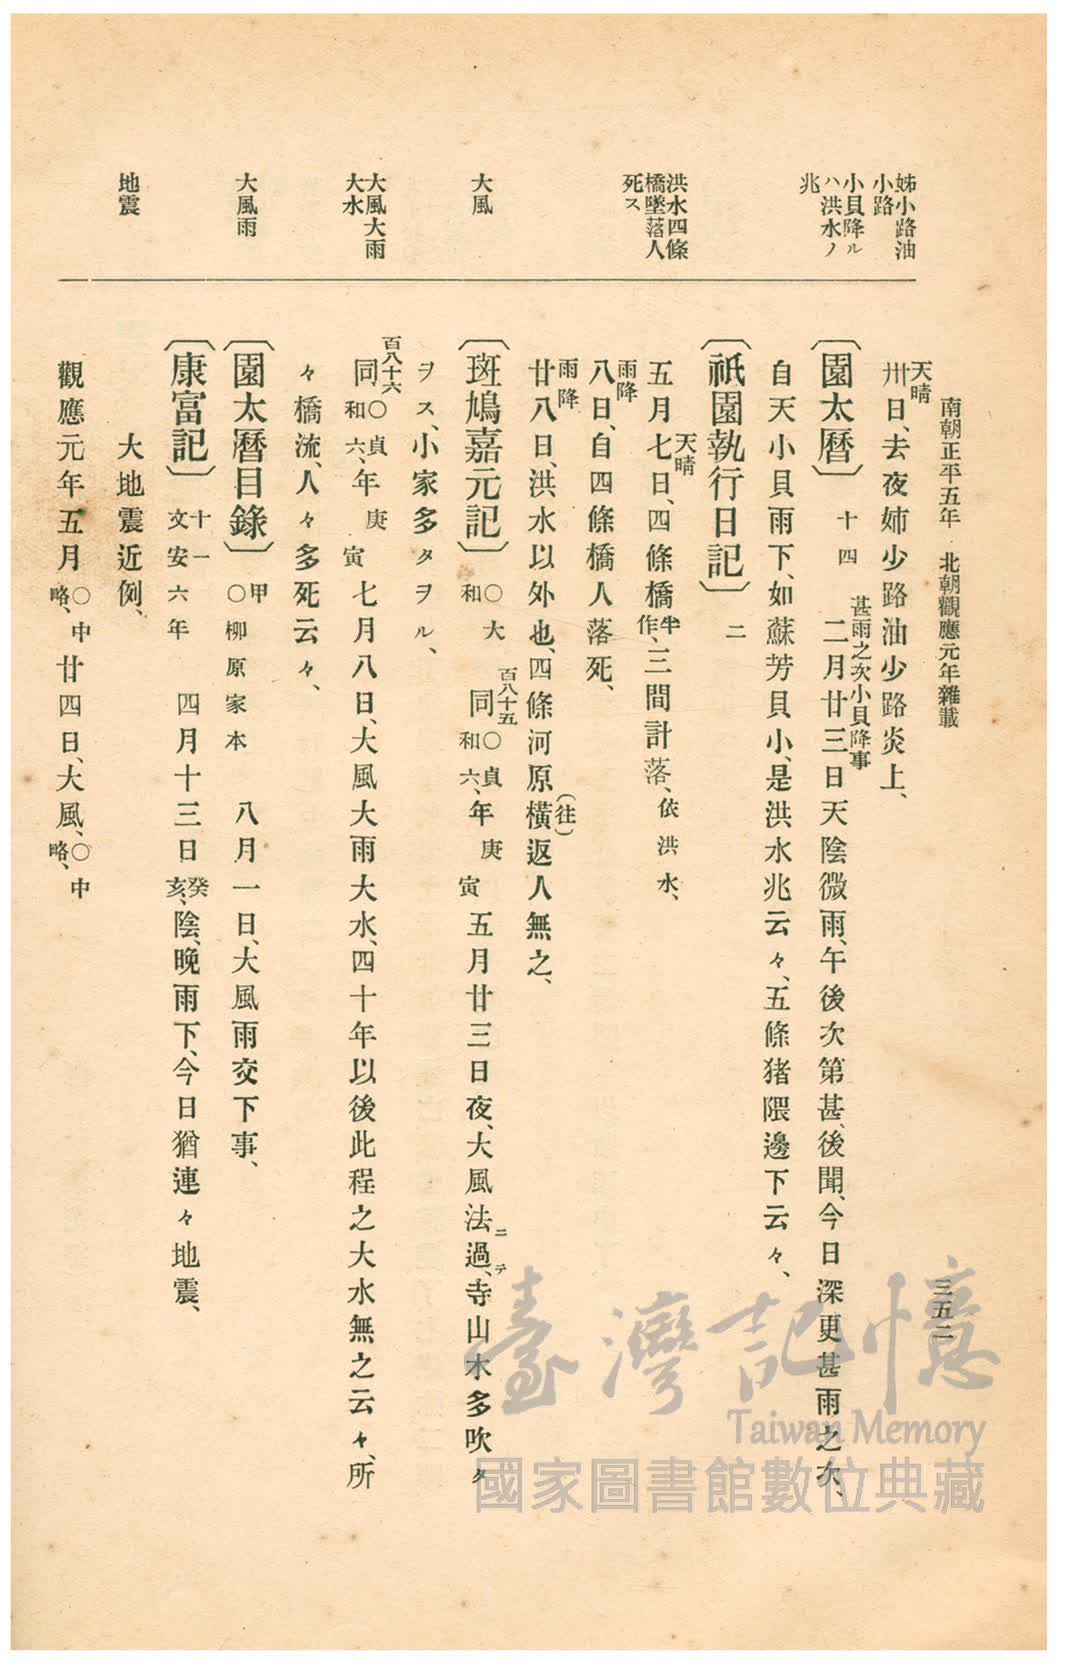 南朝正平五年　北朝觀應元年雜載
三五二
姊小路油
小路
小貝降ル
ハ洪水ノ
兆
洪水四條
橋墜落人
死ス
大風
大風大雨
大水
大風雨
地震
天晴
卅日、去夜姉少路油少路炎上、
〔園太曆〕 十四 甚雨之次小貝降事 二月廿三日天陰微雨、午後次第甚、後聞、今日深更甚雨之次、
自天小貝雨下、如蘇芳貝小、是洪水兆云々、五條猪隈邊下云々、
〔祇園執行日記〕 二
天晴
五月七日、四條橋半作、三間計落、依洪水、
雨降
八日、自四條橋人落死、
雨降
廿八日、洪水以外也、四條河原橫(往)返人無之、
〔斑鳩嘉元記〕 ○大和 百八十五 同○貞和六、年庚寅 五月廿三日夜、大風法過ニテ、寺山木多吹タ
ヲス、小家多タヲル、
百八十六
同○貞和六、年庚寅 七月八日、大風大雨大水、四十年以後此程之大水無之云々、所
々橋流、人々多死云々、
〔園太曆目錄〕 ○甲 柳原家本 八月一日、大風雨交下事、
〔康富記〕 十一 文安六年 四月十三日癸亥、陰、晩雨下、今日猶連々地震、
大地震近例、
觀應元年五月○中略、廿四日、大風、○中略、
臺灣記憶
Taiwan Memory
國家圖書館數位典藏